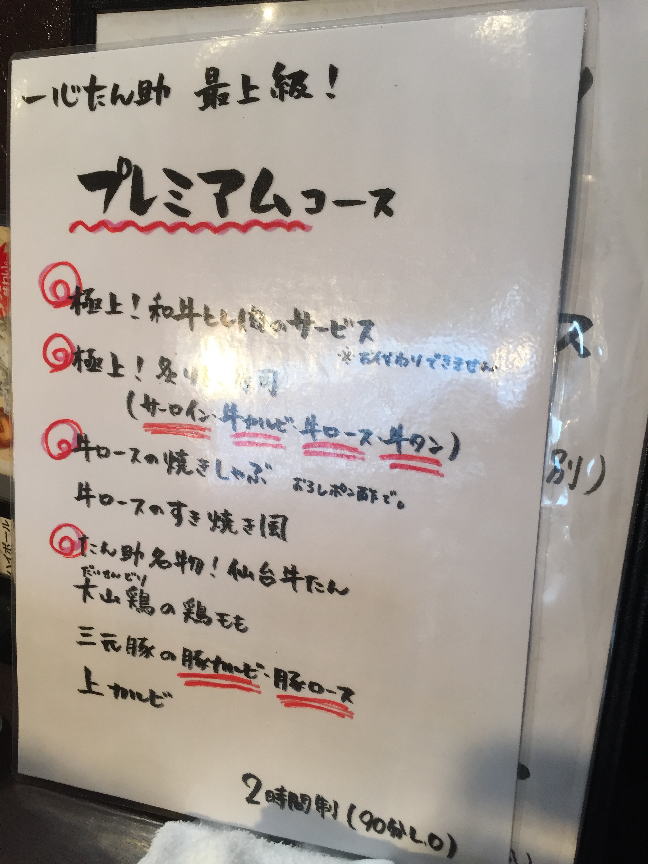 一心たん助 最上級!
プレミアムコース
極上!和牛とし肉のサービス
※おかわりできません
極上!炙り 司
(サーロイン・牛カルビ・牛ロース・牛タン)
牛ロースの焼きしゃぶ おろしポン酢で。
牛ロースのすき焼き風
たん助名物!仙台牛たん
だいせんどり
大山鶏の鶏もも
三元豚の豚カルビ・豚ロース
上カルビ
2時間制(90分L.O)
別)
ス
ハイボール